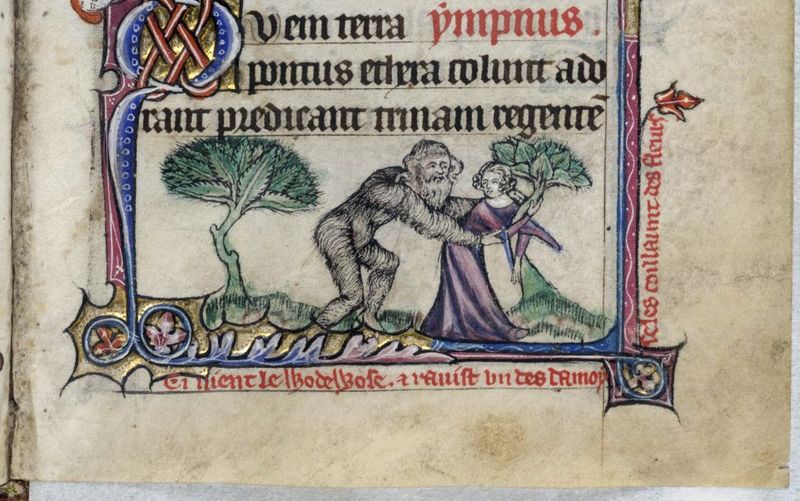 Quem terra ẏmpnus.
pontus ethera colunt ado
rant predicant trinam regentē
Ci uient le Wodewose . & rauist vn des damoy
seles coillaunt des fleurs